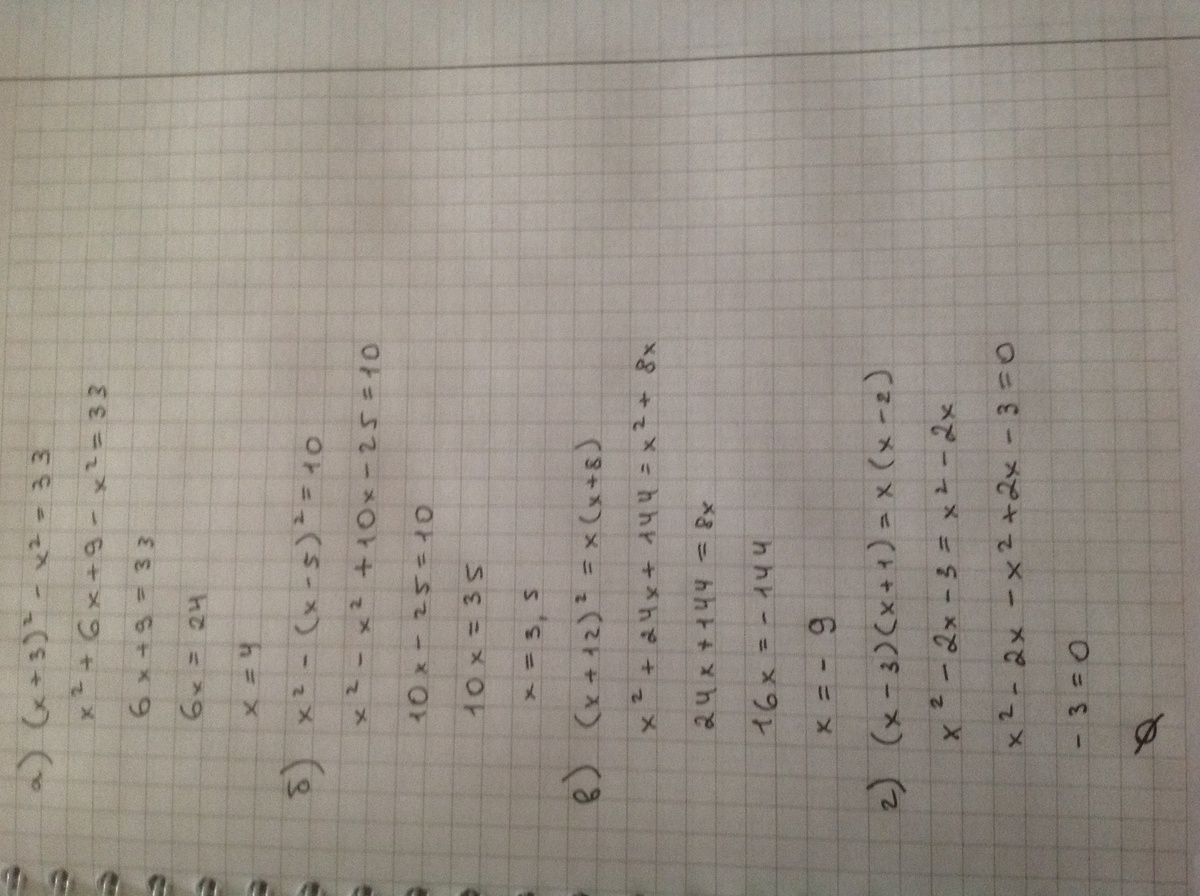 а) (x+3)² - x² = 33
x² + 6x + 9 - x² = 33
6x + 9 = 33
6x = 24
x = 4
б) x² - (x - 5)² = 10
x² - x² + 10x - 25 = 10
10x - 25 = 10
10x = 35
x = 3,5
в) (x+12)² = x(x+8)
x² + 24x + 144 = x² + 8x
24x + 144 = 8x
16x = -144
x = -9
г) (x - 3)(x+1) = x(x - 2)
x² - 2x - 3 = x² - 2x
x² - 2x - x² + 2x - 3 = 0
-3 = 0
∅